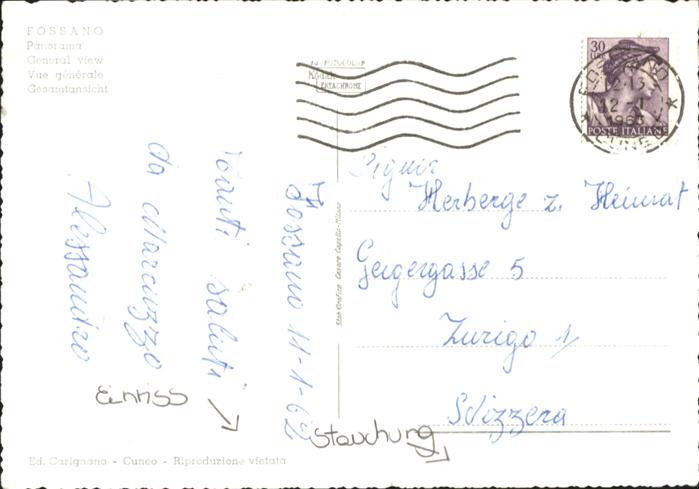 FOSSANO
Panorama
General view
Vue générale
Gesamtansicht
Kodak
EKTACHROME
30
FOSSANO
12-13
12 - 1
1963
CUNEO
POSTE ITALIANE
Fossano 11-1-62
Tanti saluti
da Marcuzzo
Alessandro
Signor
Herberge z. Heimat
Geigergasse 5
Zurigo 1
Svizzera
Einriss
Stauchung
Stab. Grafico Cesare Capello - Milano
Ed. Garignano - Cuneo - Riproduzione vietata